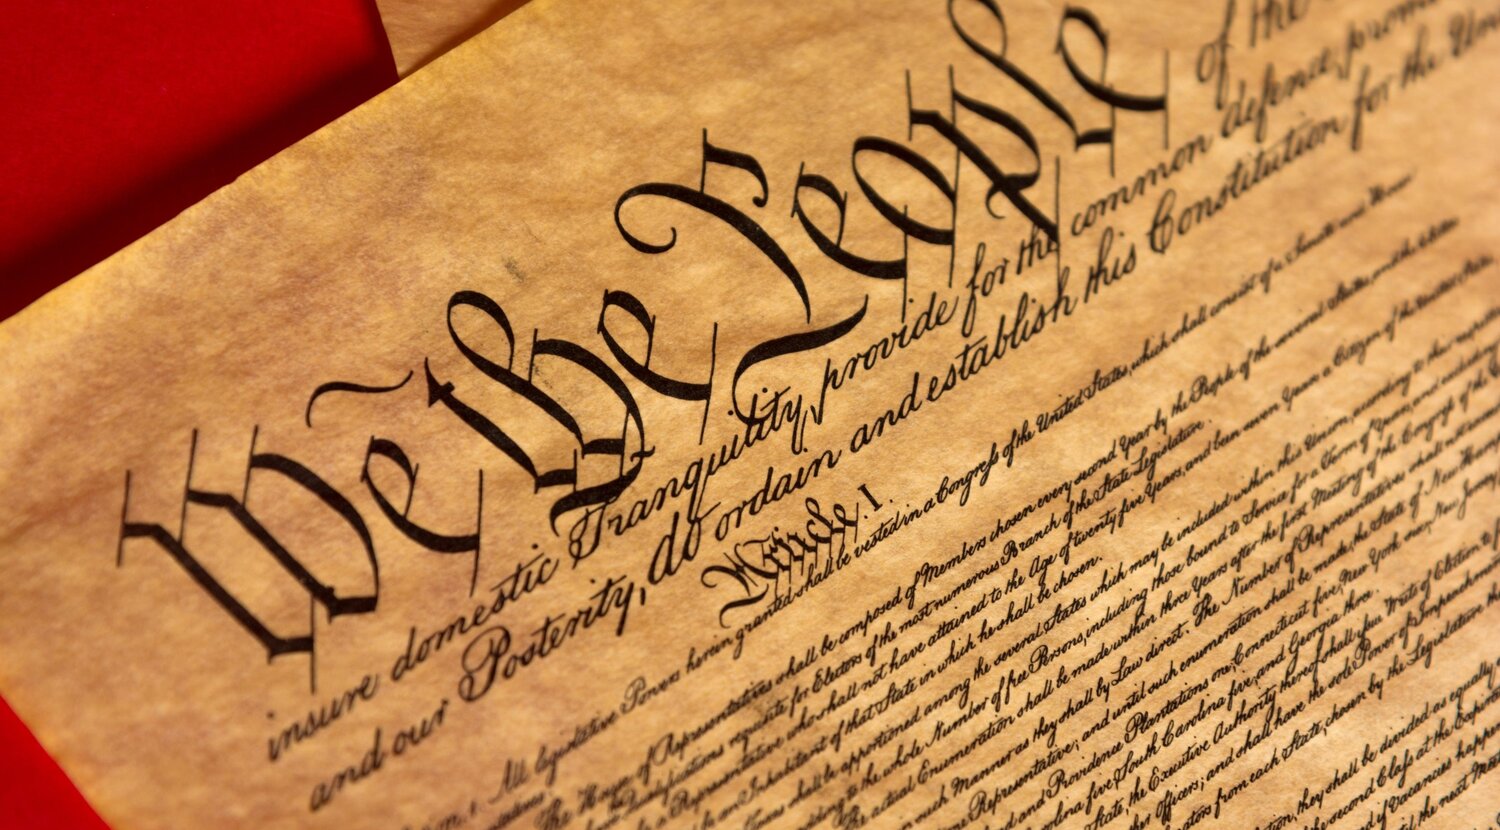 We the People of the
insure domestic Tranquility, provide for the common defence, promo
and our Posterity, do ordain and establish this Constitution for the Un
Article. I.
All legislative Powers herein granted shall be vested in a Congress of the United States, which shall consist of a Senate and House
The House of Representatives shall be composed of Members chosen every second Year by the People of the several States, and the Electors
Qualifications requisite for Electors of the most numerous Branch of the State Legislature.
a Representative who shall not have attained to the Age of twenty five Years, and been seven Years a Citizen of the United States,
be an Inhabitant of that State in which he shall be chosen.
Taxes shall be apportioned among the several States which may be included within this Union, according to their
to the whole Number of free Persons, including those bound to Service for a Term of Years, and
actual Enumeration shall be made within three Years after the first Meeting of the Congress of the
such Manner as they shall by Law direct. The Number of Representatives shall not
Representative; and until such enumeration shall be made, the State of New
and Providence Plantations one, Connecticut five, New York six, New Jersey
five, South Carolina five, and Georgia three.
State, the Executive Authority thereof shall issue Writs of Election to
Officers; and shall have the sole Power of Impeachment
from each State, chosen by the Legislature
they shall be divided as equally
second Class at the Expiration
if Vacancies happen
the next